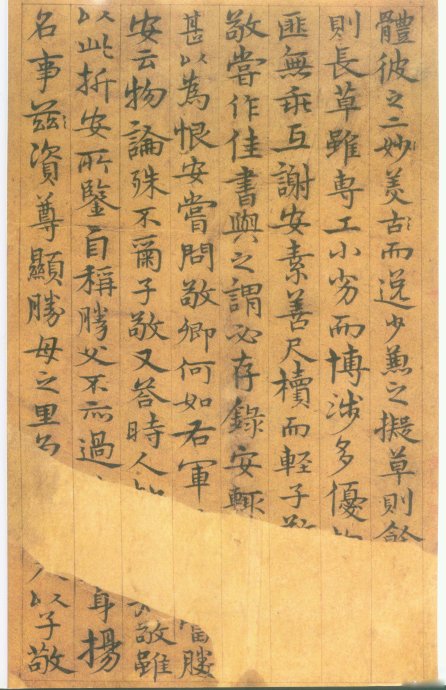 體彼之二妙羙古而逸少兼之擬草則餘
則長草雖専工小劣而博涉多優
匪無乖互謝安素善尺牘而輕子敬
敬嘗作佳書與之謂必存錄安輒
甚以為恨安嘗問敬卿何如右軍當勝
安云物論殊不爾子敬又答時人敬雖
以此折安所鑒自稱勝父不亦過身揚
名事茲資尊顯勝母之里入以子敬